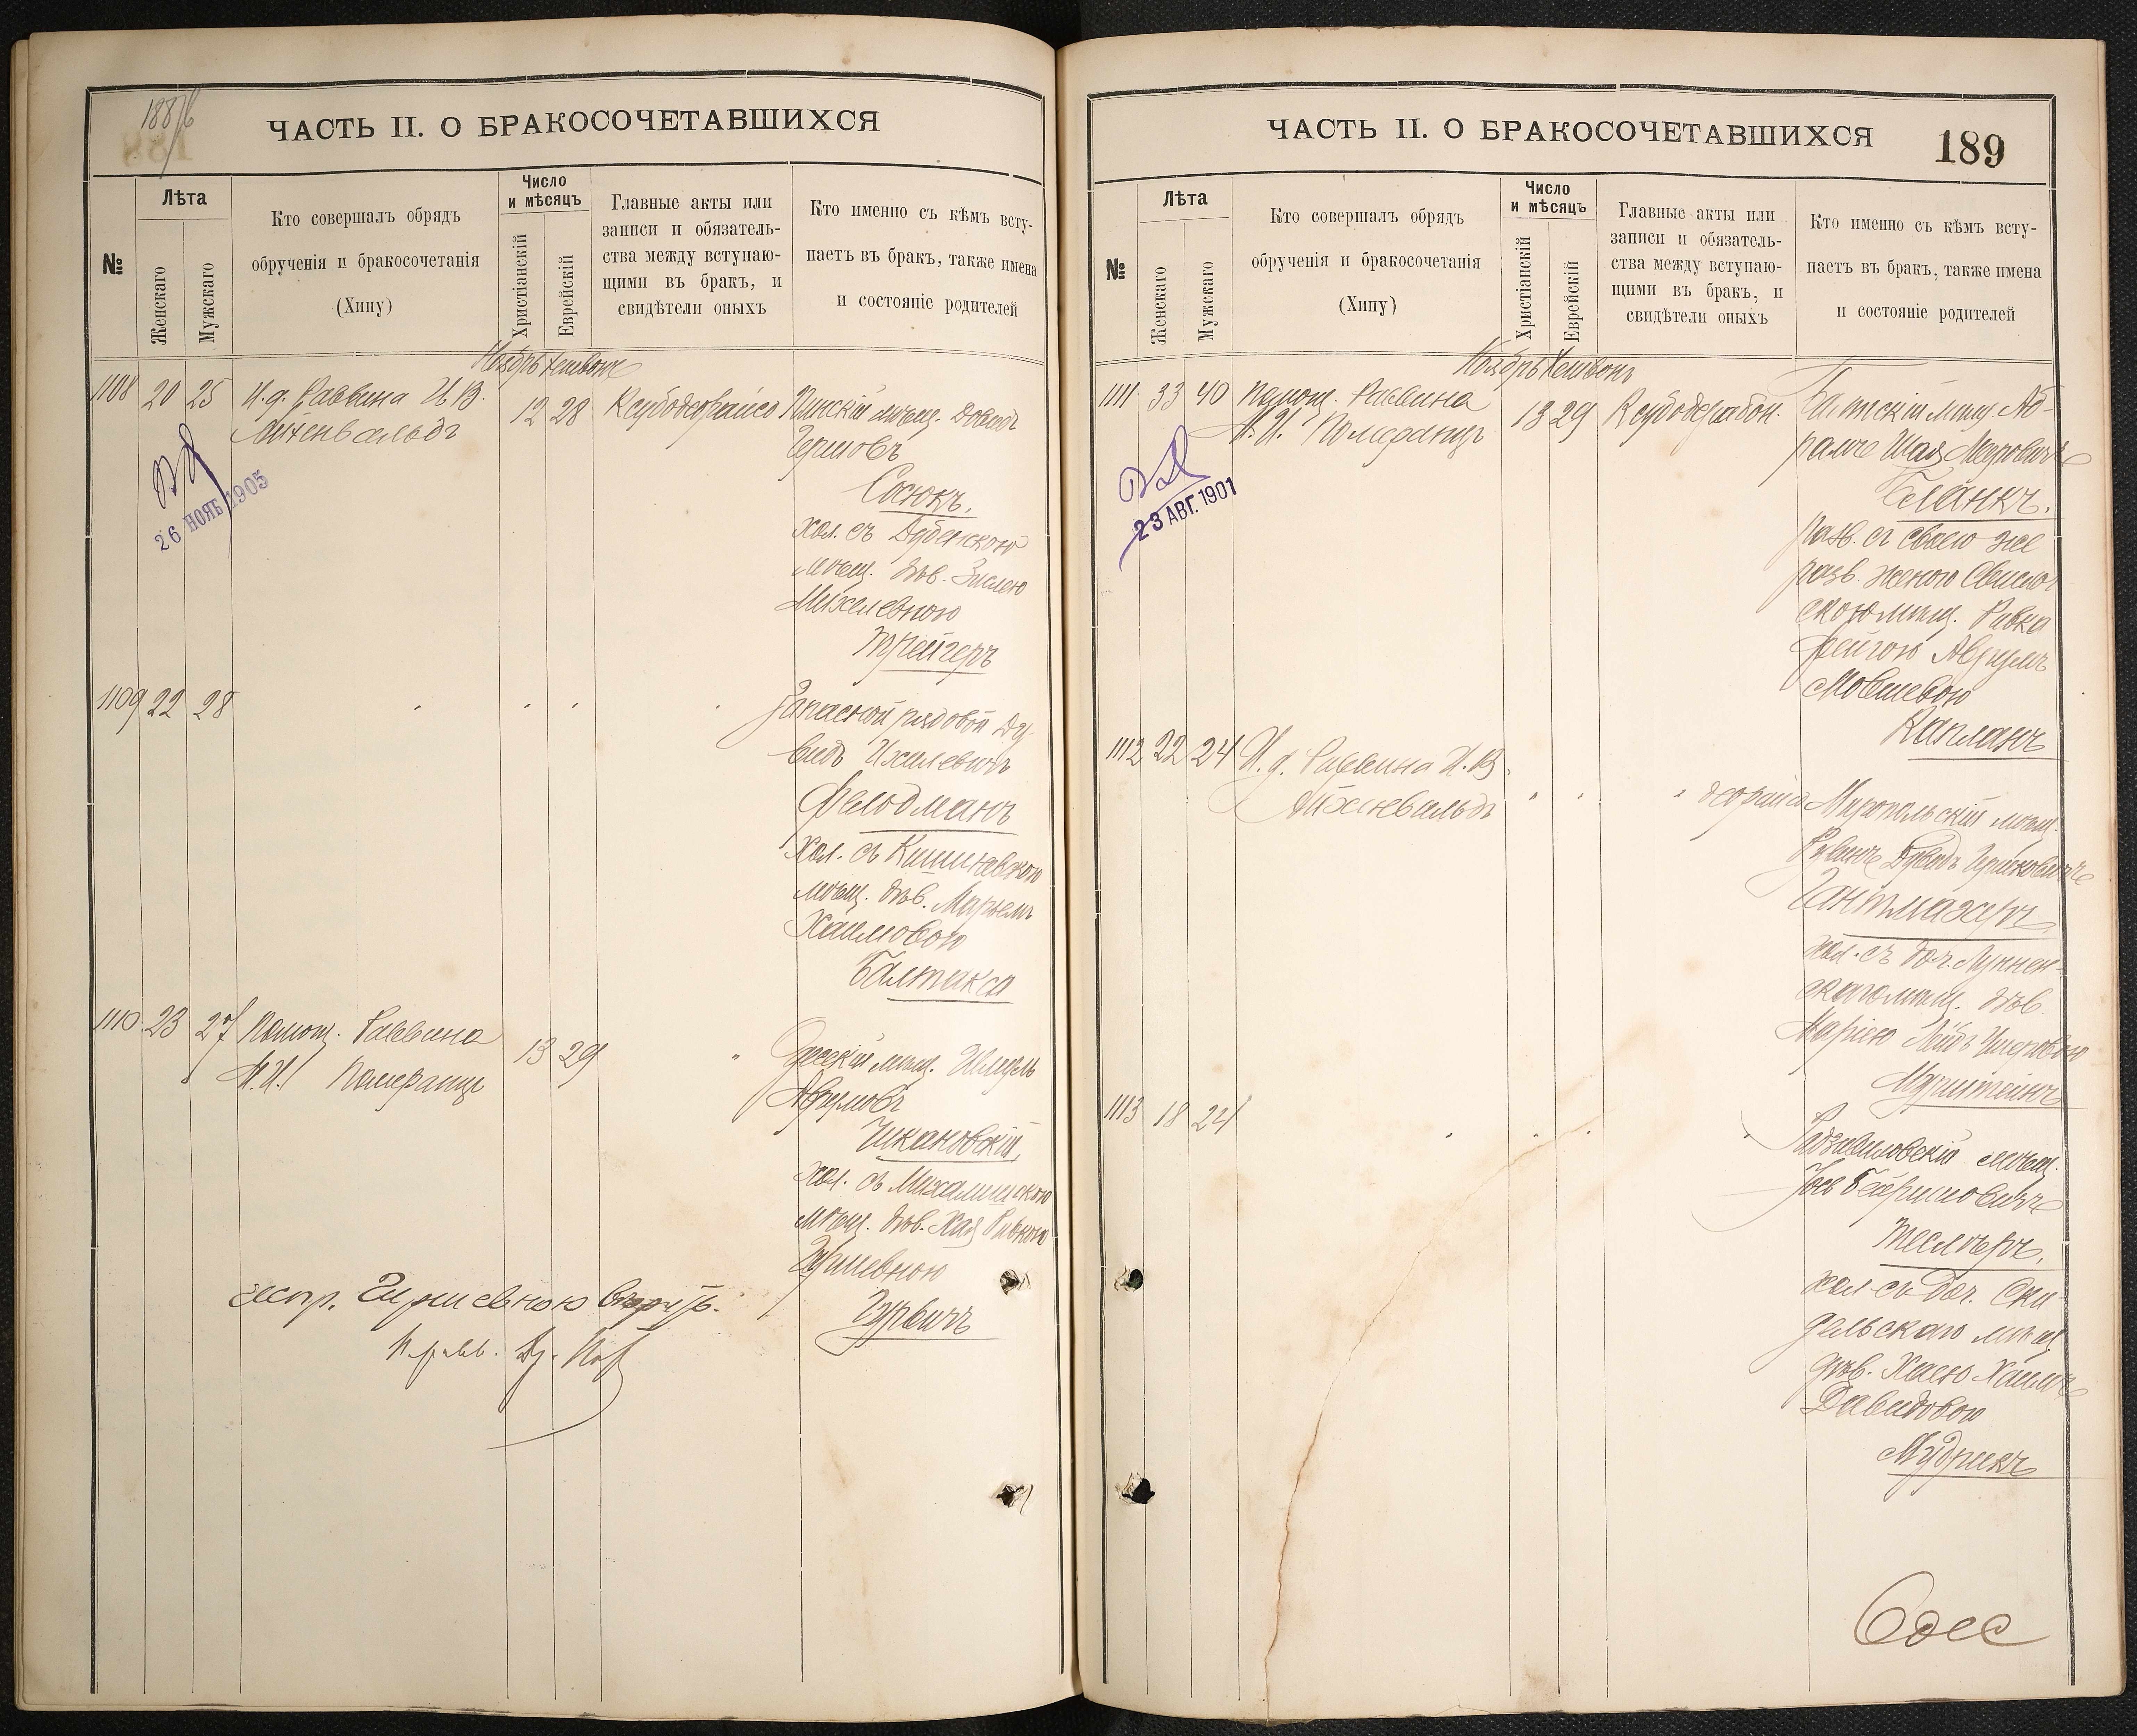 188/6
ЧАСТЬ II. О БРАКОСОЧЕТАВШИХСЯ
№
Лѣта
Женскаго
Мужскаго
Кто совершалъ обрядъ
обрученія и бракосочетанія
(Хину)
Число
и мѣсяцъ
Христіанскій
Еврейскій
Главные акты или
записи и обязатель-
ства между вступаю-
щими въ бракъ, и
свидѣтели оныхъ
Кто именно съ кѣмъ всту-
паетъ въ бракъ, также имена
и состояніе родителей
Ноябрь Хешвонъ
1108 20 25 И. д. Раввина И. В.
Айхенвальдъ
12 28
Пинскій мѣщ. Довидъ
Гершовъ
Сосюкъ.
хол. съ Дубенскою
мѣщ. дѣв. Зислею
Михелевною
Трейгеръ
26 НОЯБ 1905
1109 22 28
Запасной рядовой Ду-
видъ Ихилевичъ
Фельдманъ
хол. съ Кишиневскою
мѣщ. дѣв. Марьемъ
Хаимовою
Балтакса
1110 23 27 Помощ. Раввина
А. И. Померанцъ
13 29
Одесскій мѣщ. Шмуль
Аврумовъ
Чикановскій,
хол. съ Михалишскою
мѣщ. дѣв. Хая Ривкою
Гершевною
Гурвичъ
испр. Гиршевною
ЧАСТЬ II. О БРАКОСОЧЕТАВШИХСЯ
189
№
Лѣта
Женскаго
Мужскаго
Кто совершалъ обрядъ
обрученія и бракосочетанія
(Хину)
Число
и мѣсяцъ
Христіанскій
Еврейскій
Главные акты или
записи и обязатель-
ства между вступаю-
щими въ бракъ, и
свидѣтели оныхъ
Кто именно съ кѣмъ всту-
паетъ въ бракъ, также имена
и состояніе родителей
Ноябрь Хешвонъ
1111 33 40 Помощ. Раввина
А. И. Померанцъ
13 29
Балтскій мѣщ. Аб-
рамъ Шая Меровичъ
Бланкъ.
разв. съ своею же
разв. женою Свисло-
скою мѣщ. Ривка
Фейгою Аврумъ
Мовшевою
Капланъ
23 АВГ. 1901
1112 22 24 И. д. Раввина И. В.
Айхенвальдъ
Миропольскій мѣщ.
Рувинъ Дувидъ Гершковичъ
Гантмахеръ
хол. съ доч. Лунен-
скаго мѣщ. дѣв.
Маріею Лейбъ Ушеровою
1113 18 24
Радзивиловскій мѣщ.
Іось Берошовичъ
Теслеръ,
хол. съ доч. Ски-
дельскаго мѣщ
дѣв. Хаею Хаимъ
Давидовою
Мудрикъ
Одес